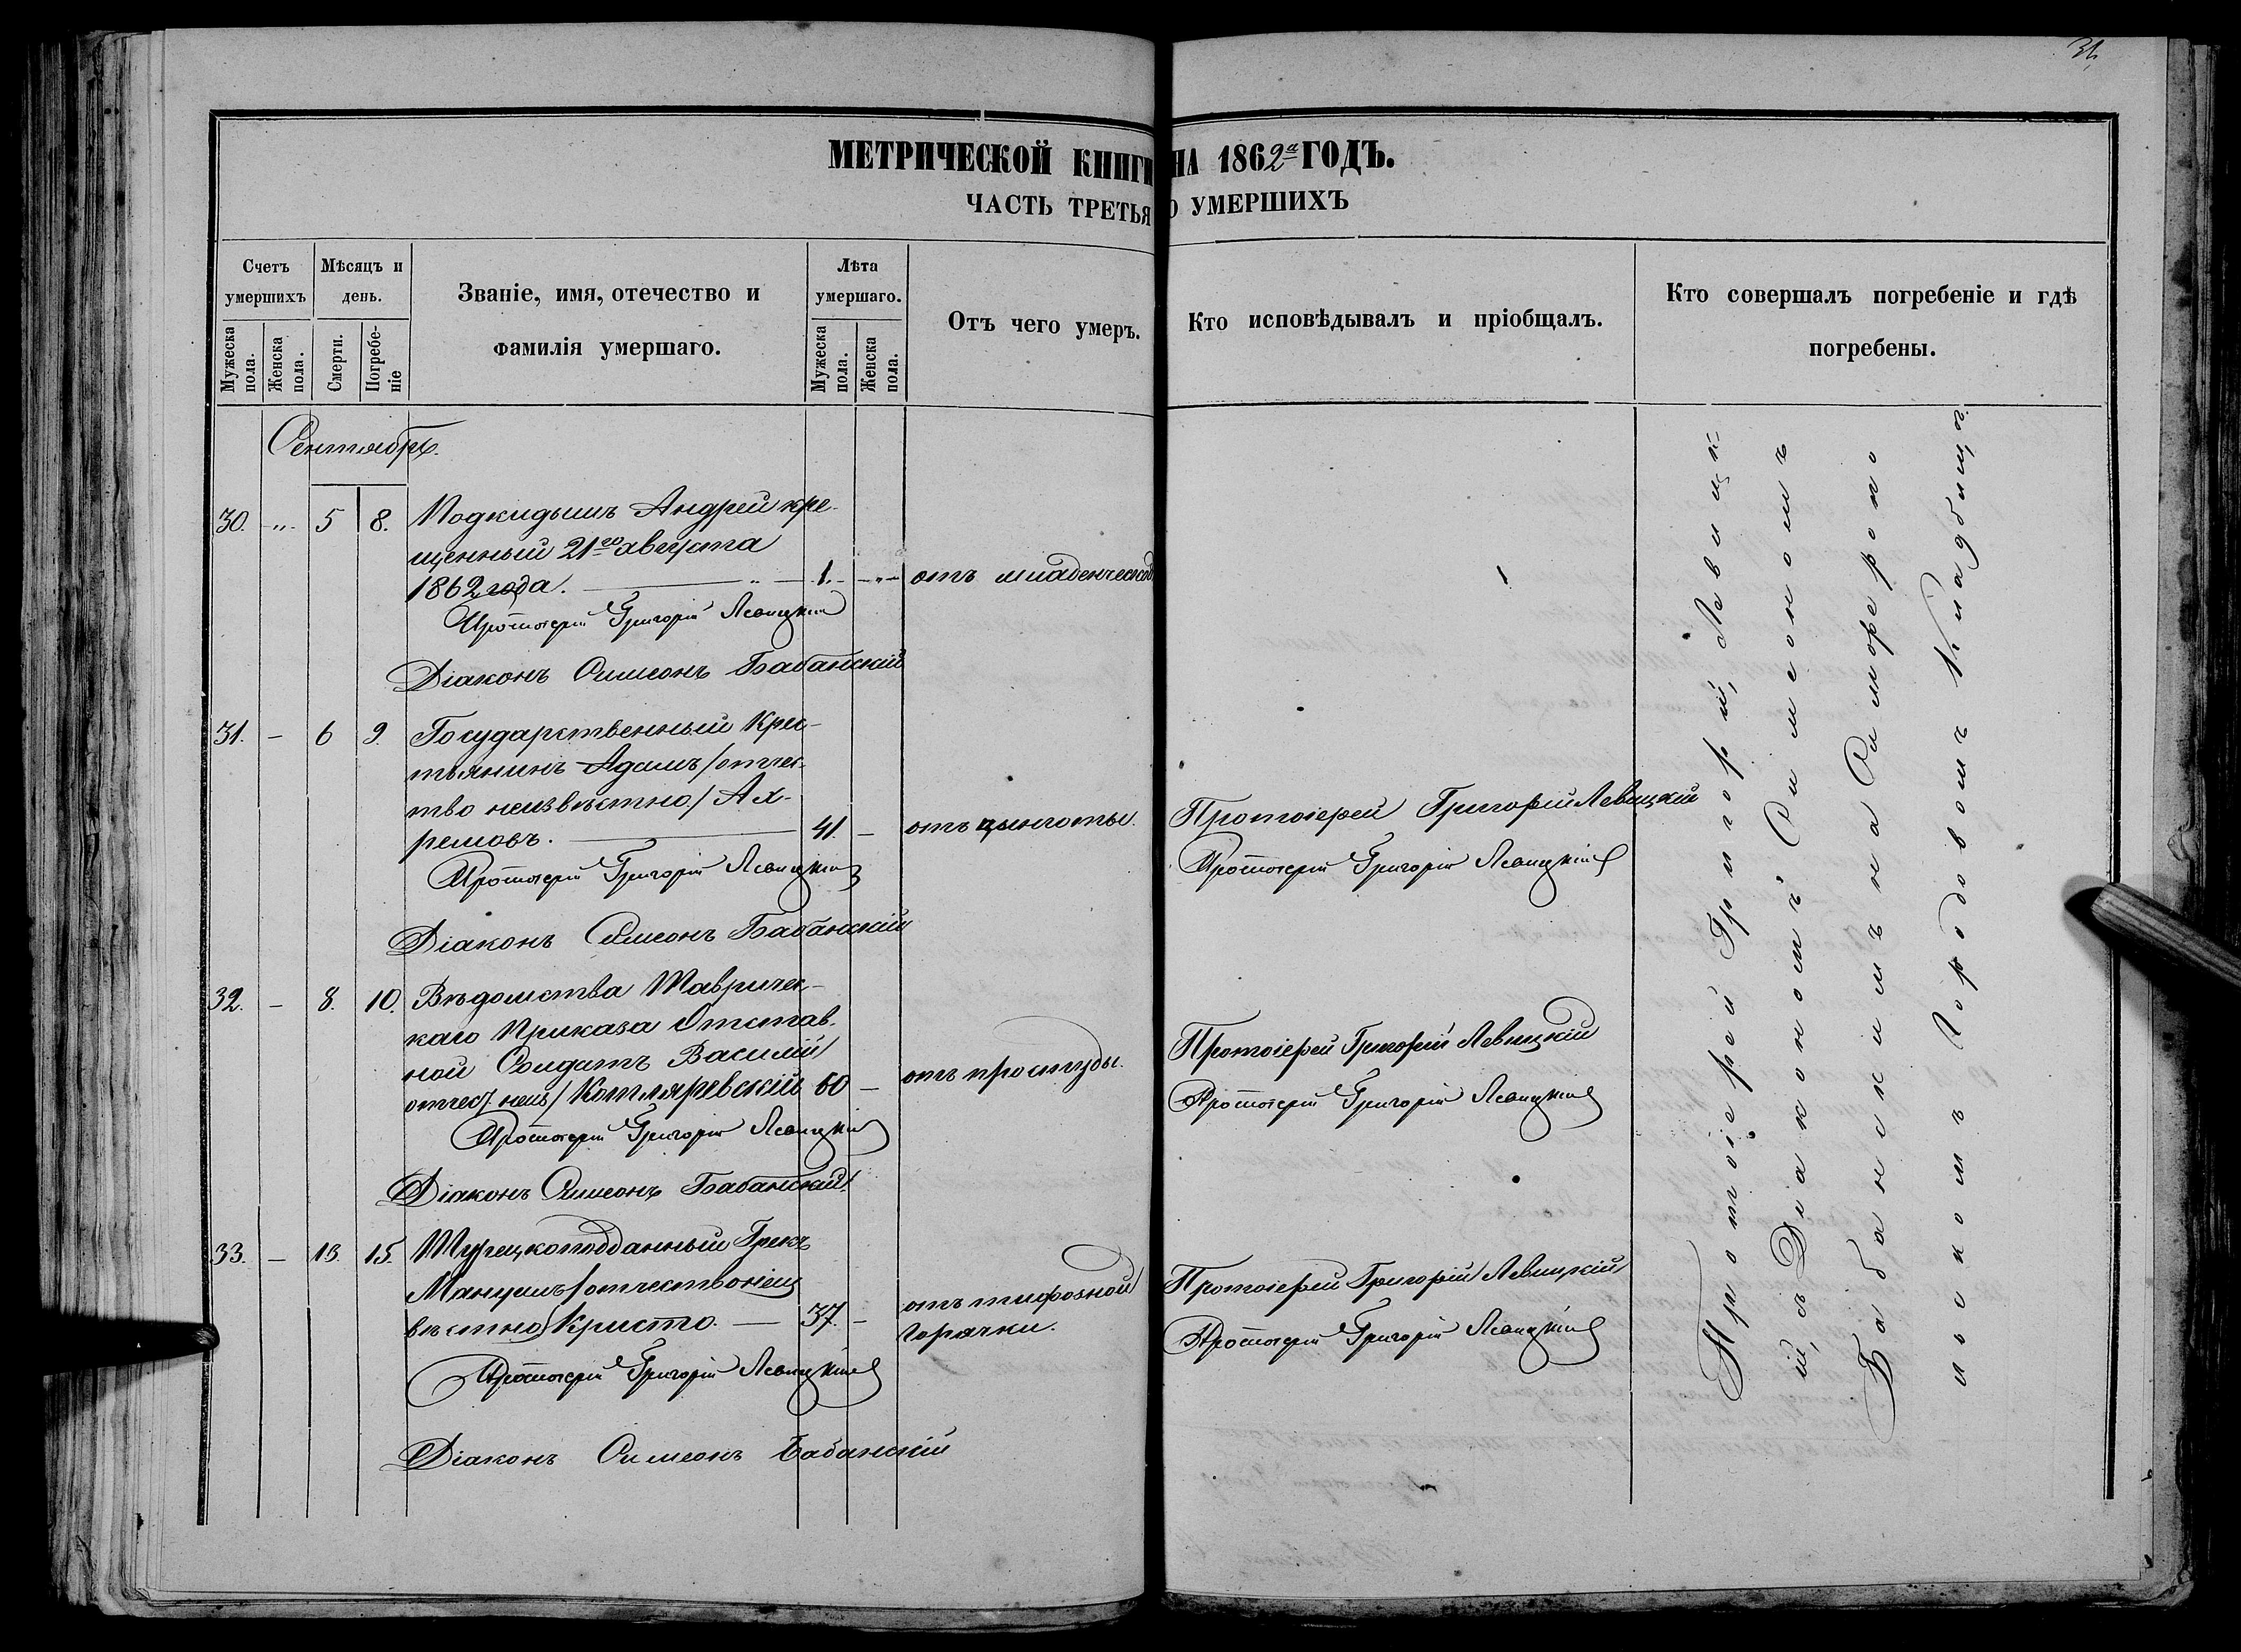 31.
МЕТРИЧЕСКОЙ КНИГИ НА 1862й ГОДЪ.
ЧАСТЬ ТРЕТЬЯ О УМЕРШИХЪ
Счетъ умершихъ
Мѣсяцъ и день.
Званіе, имя, отечество и фамилія умершаго.
Лѣта умершаго.
Отъ чего умеръ.
Кто исповѣдывалъ и пріобщалъ.
Кто совершалъ погребеніе и гдѣ погребены.
Мужеска пола.
Женска пола.
Смерти.
Погребеніе
Мужеска пола.
Женска пола.
Сентябрь.
30. -„- 5 8. Подкидышъ Андрей кре-
щенный 21го августа
1862 года. — „ — 1. -„- отъ младенческой
Протоіерей Григорій Левицкій
Діаконъ Симеонъ Бабанскій
31. - 6 9. Государственный Крес-
тьянинъ Адамъ /отчес-
тво неизвѣстно/ Ах-
ремовъ. — 41. - отъ цынготы. Протоіерей Григорій Левицкій
Протоіерей Григорій Левицкій Протоіерей Григорій Левицкій
Діаконъ Симеонъ Бабанскій
32. - 8. 10. Вѣдомства Тавричес-
каго Приказа Отстав-
ной Солдатъ Василій Протоіерей Григорій Левицкій
отчес. неиз/ Котляревскій 60 - отъ простуды. Протоіерей Григорій Левицкій
Протоіерей Григорій Левицкій
Діаконъ Симеонъ Бабанскій
33. - 13. 15. Турецкоподданный Грекъ
Мануилъ /отчество неиз Протоіерей Григорій Левицкій
вѣстно/ Кристо. — 37. - отъ тифозной горячки. Протоіерей Григорій Левицкій
Протоіерей Григорій Левицкій
Діаконъ Симеонъ Бабанскій
Протоіерей Григорій Левицк-
ій, съ Діакономъ Симеономъ
Бабанскимъ на Симферопо
льскомъ Городовомъ Кладбищѣ